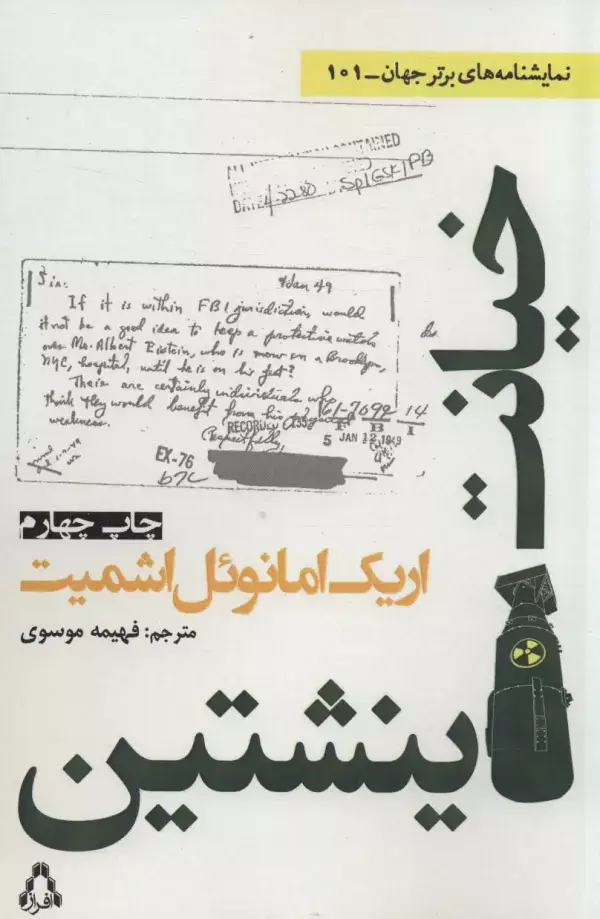 نمایشنامه‌های برتر جهان - ۱۰۱
CONTAINED
DATE 4-22-80 Sp1GSK/PB
Sir:
4 Jan 49
If it is within FBI jurisdiction, would
it not be a good idea to keep a protective watch
over Mr. Albert Eistein, who is now in a Brooklyn,
NYC, hospital, until he is on his feet?
There are certainly individuals who
think they would benefit from his
weakness.
Respectfully,
RECORDED
61-7099 14
F B I
5 JAN 12 1949
EX-76
b7c
خیانت
اینشتین
چاپ چهارم
اریک امانوئل اشمیت
مترجم: فهیمه موسوی
افراز